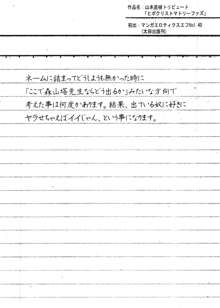 作品名：山本直樹トリビュート
「ヒポクリストマトリーファズ」
初出：マンガエロティクスエフNo1 40
（太田出版刊）
ネームに詰まってどうしようも無かった時に
「ここで森山塔先生ならどう出るか」みたいな方向で
考えた事は何度かあります。結果、出ている奴に好きに
ヤラせちゃえばイイじゃん、という事になります。